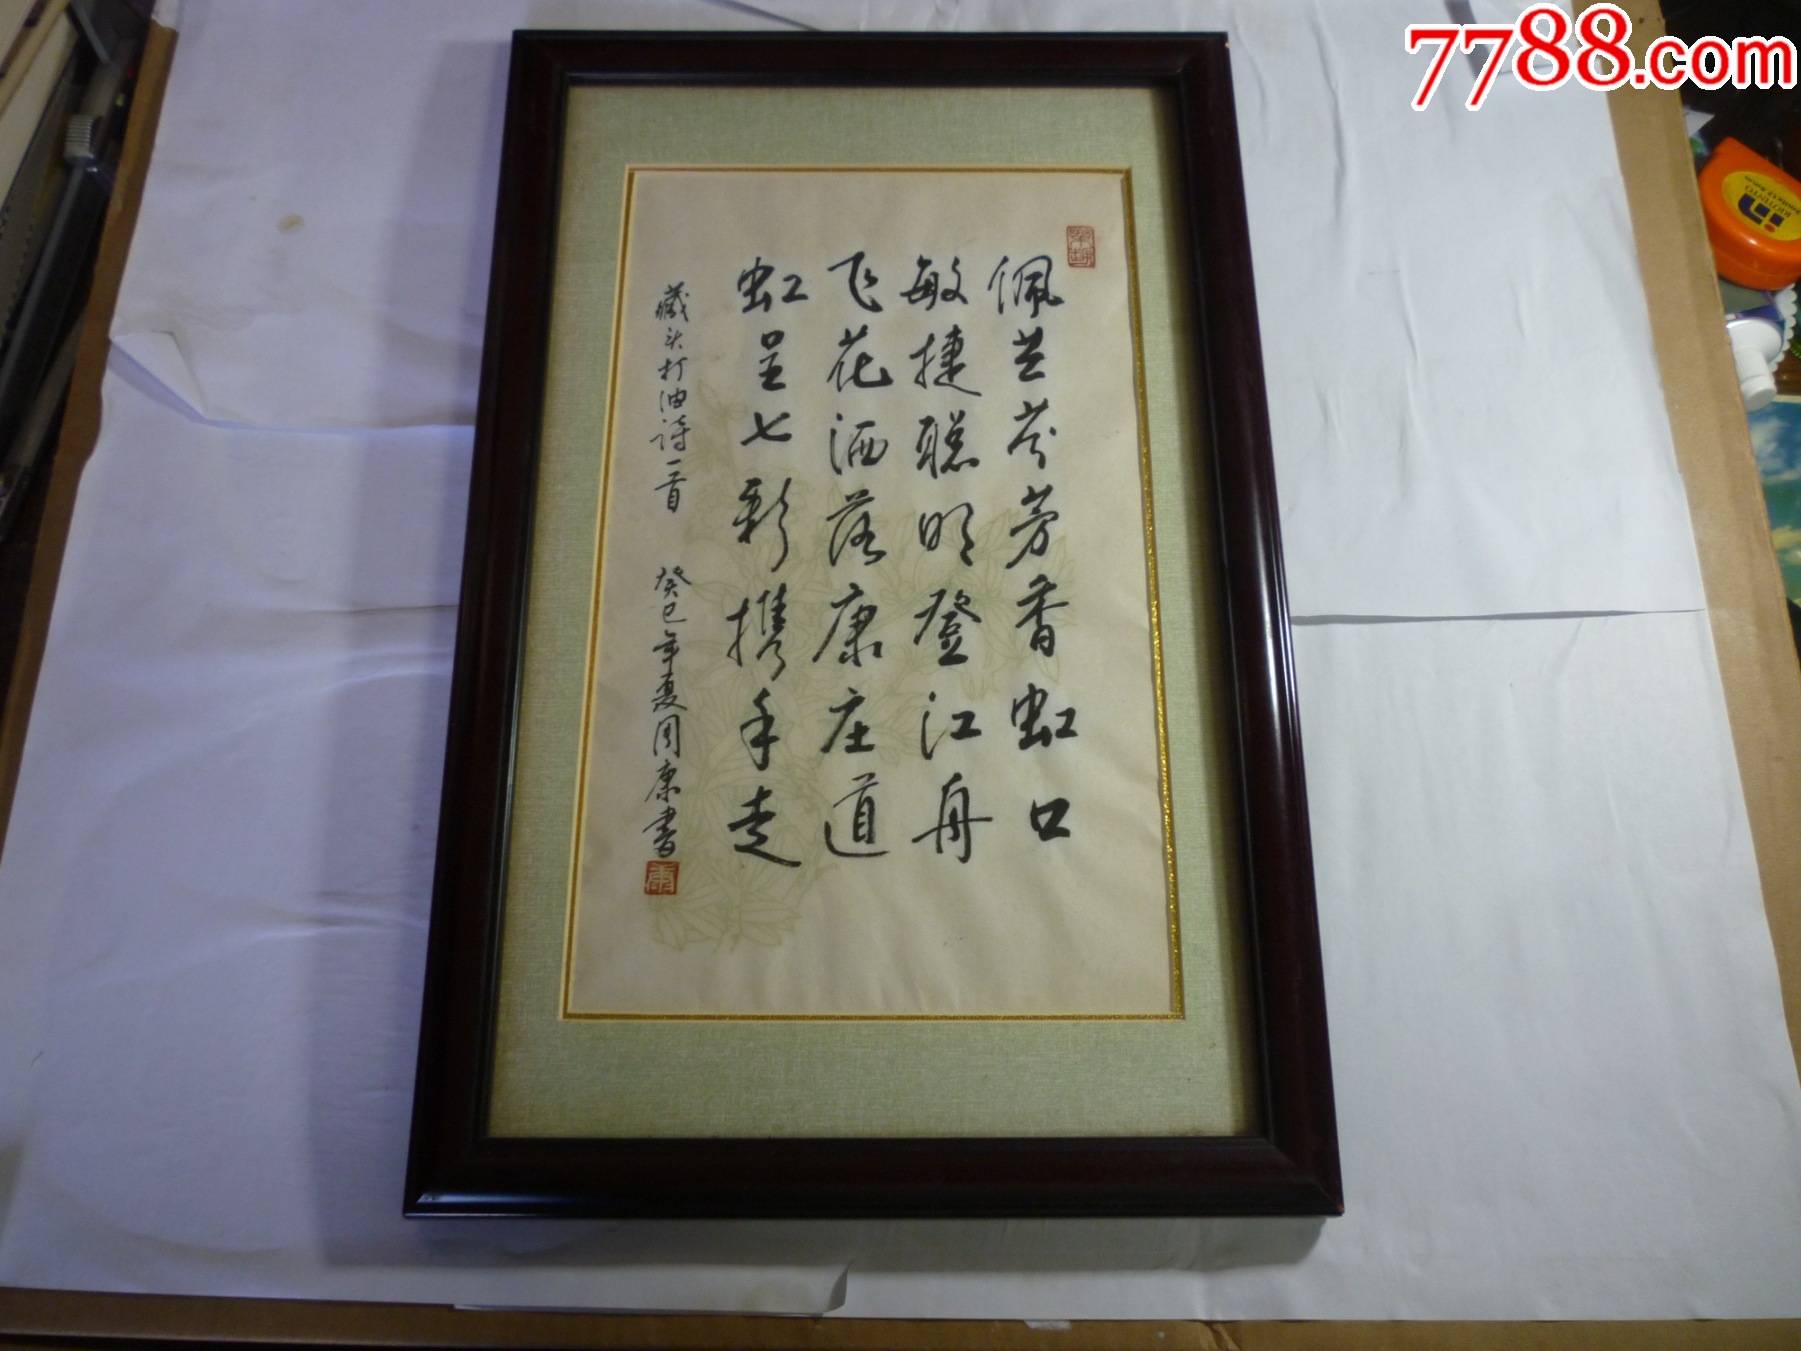 7788.com
佩兰芬芳香虹口
敏捷聪明登江舟
飞花洒落康庄道
虹呈七彩携手走
藏头打油诗一首 癸巳年夏周康书
康